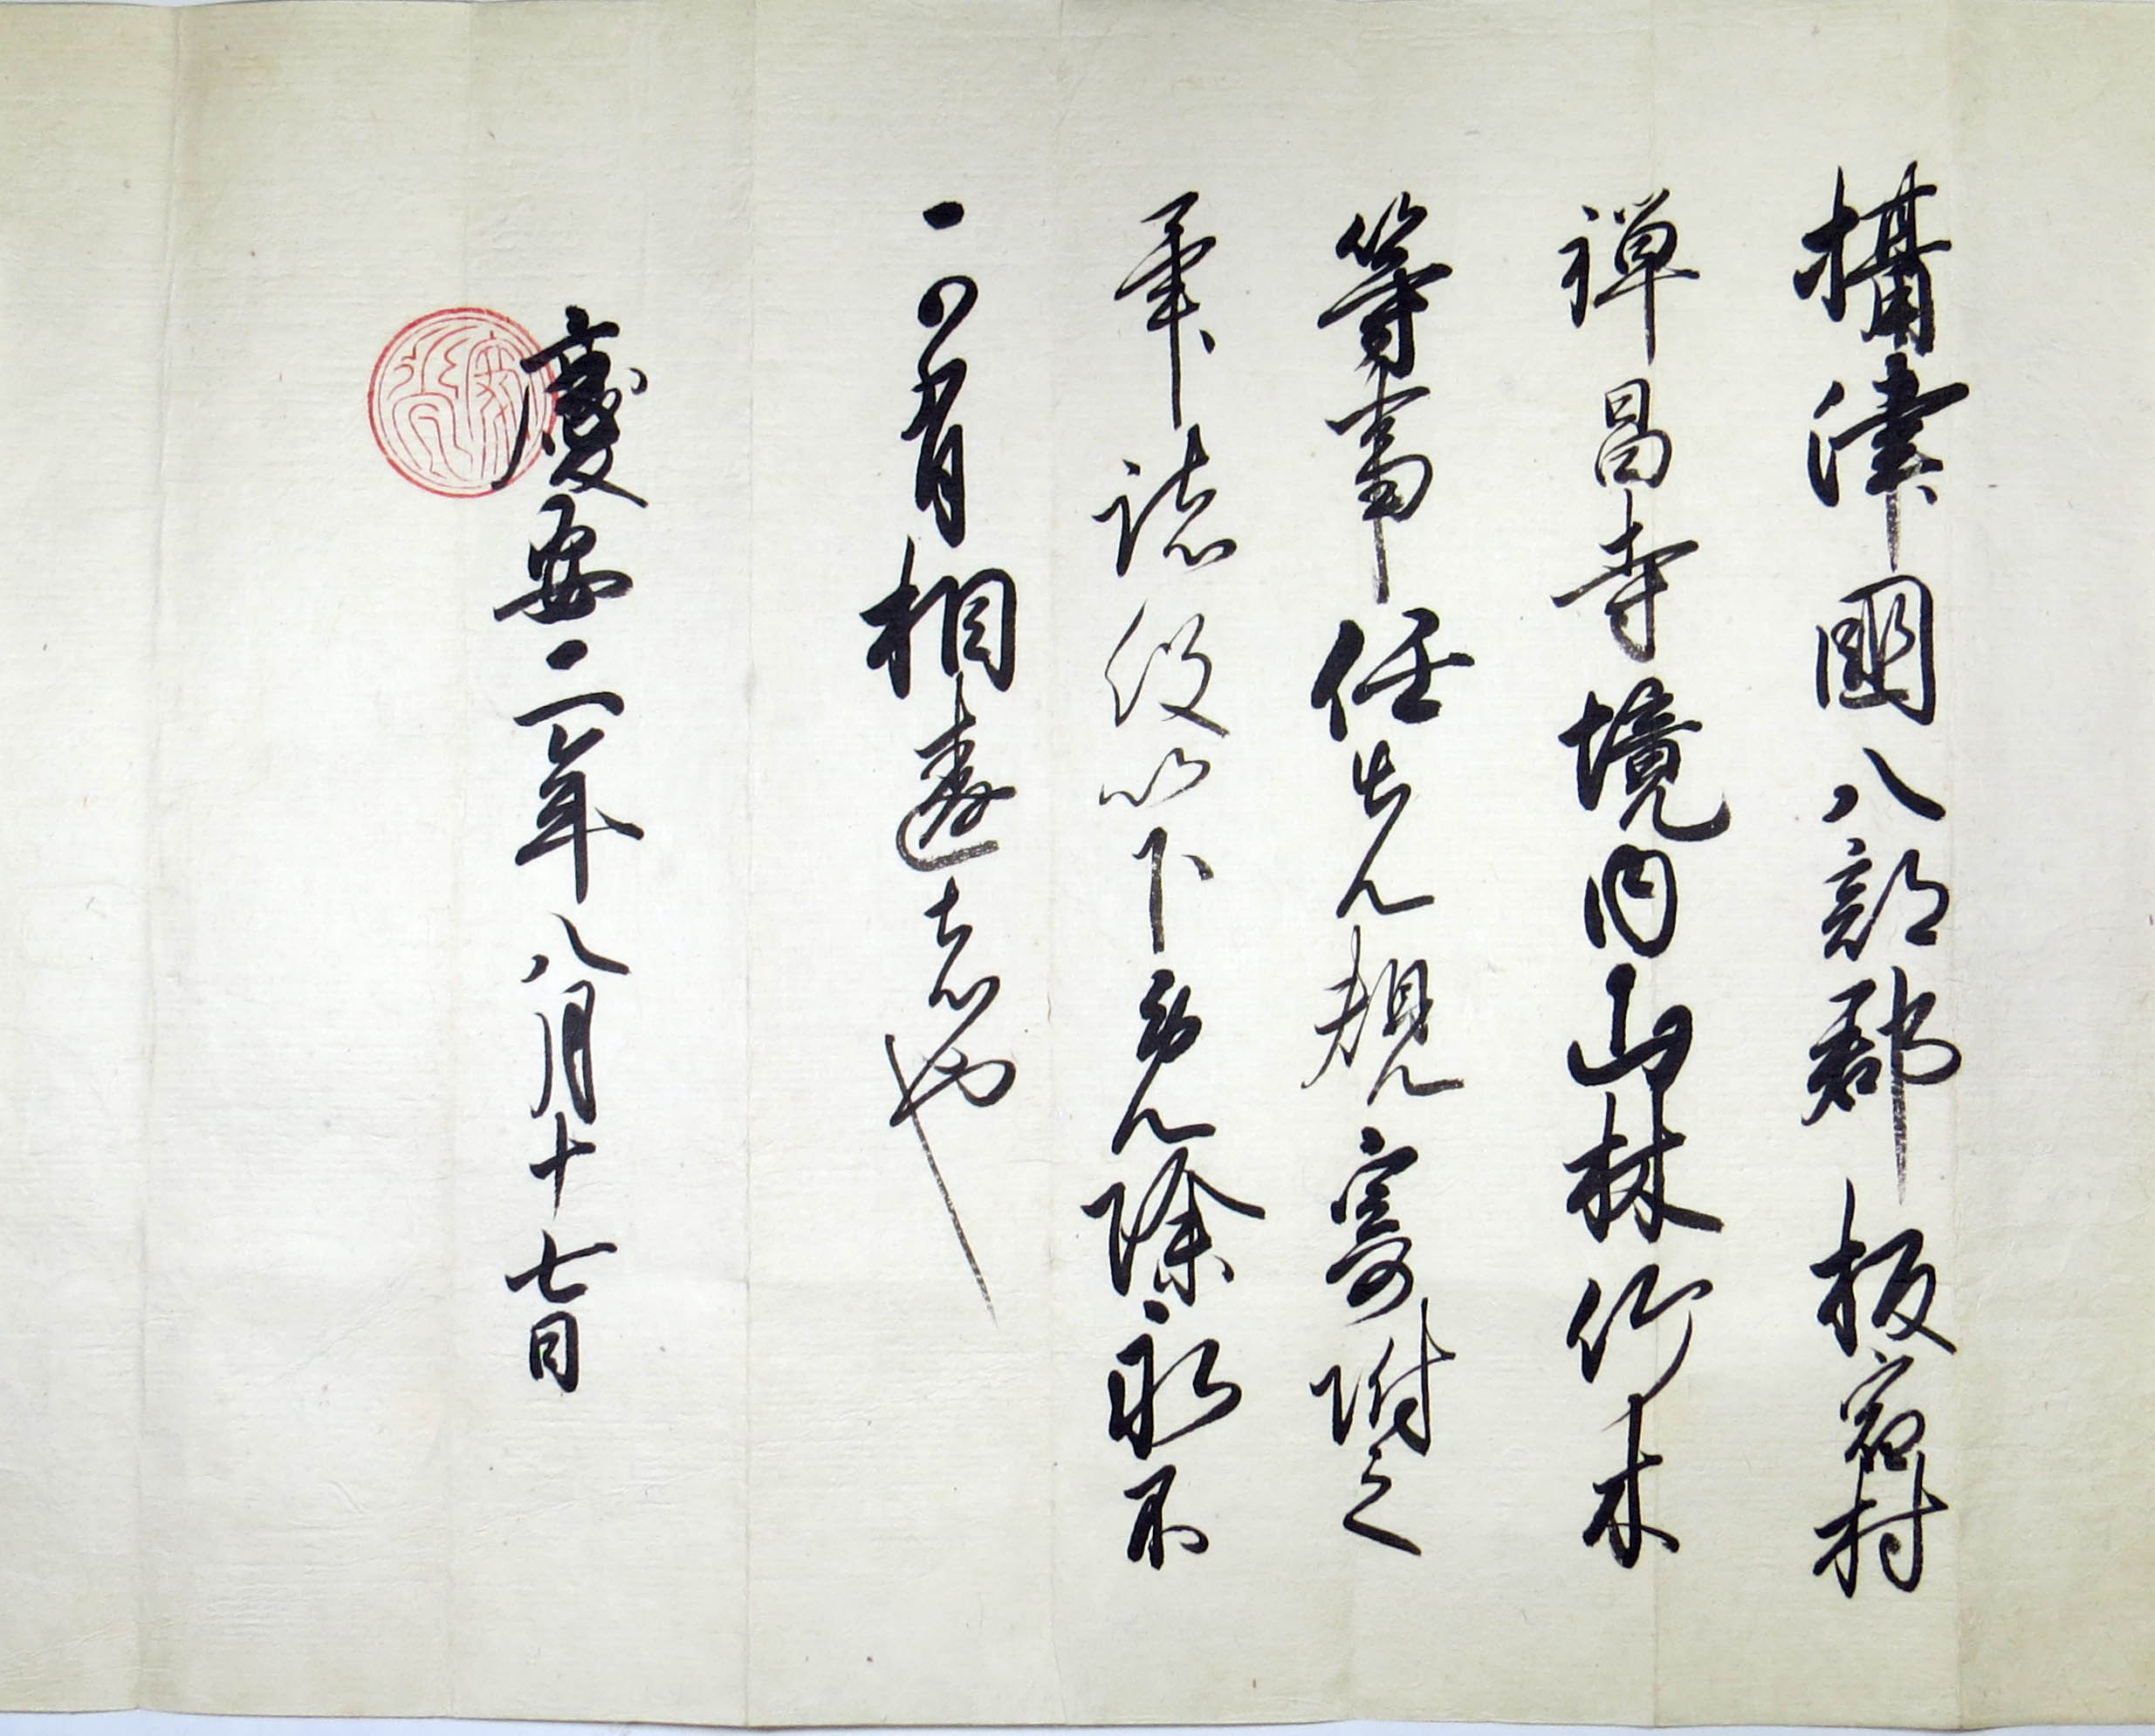 攝津國八部郡板宿村
禅昌寺境内山林竹木
等事任先規寄附之
畢諸役以下免除永不
可有相違者也
慶安二年八月十七日